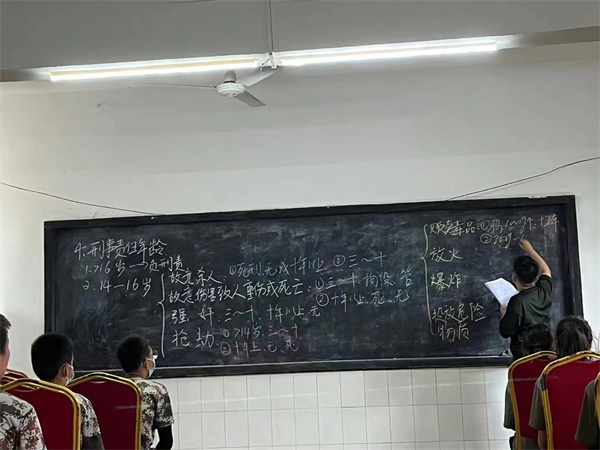 4.刑事责任年龄
1.>16岁→负刑责
2.14-16岁
故意杀人、①死刑、无或十年以上 ②三～十
故意伤害致人重伤或死亡、①三～十
②十年以上、死、无
强奸、三～十、十年以上、无
抢劫、①>14岁:三～十
②十年以上、无、死
贩卖毒品:①
②
放火
爆炸
投放危险
物质